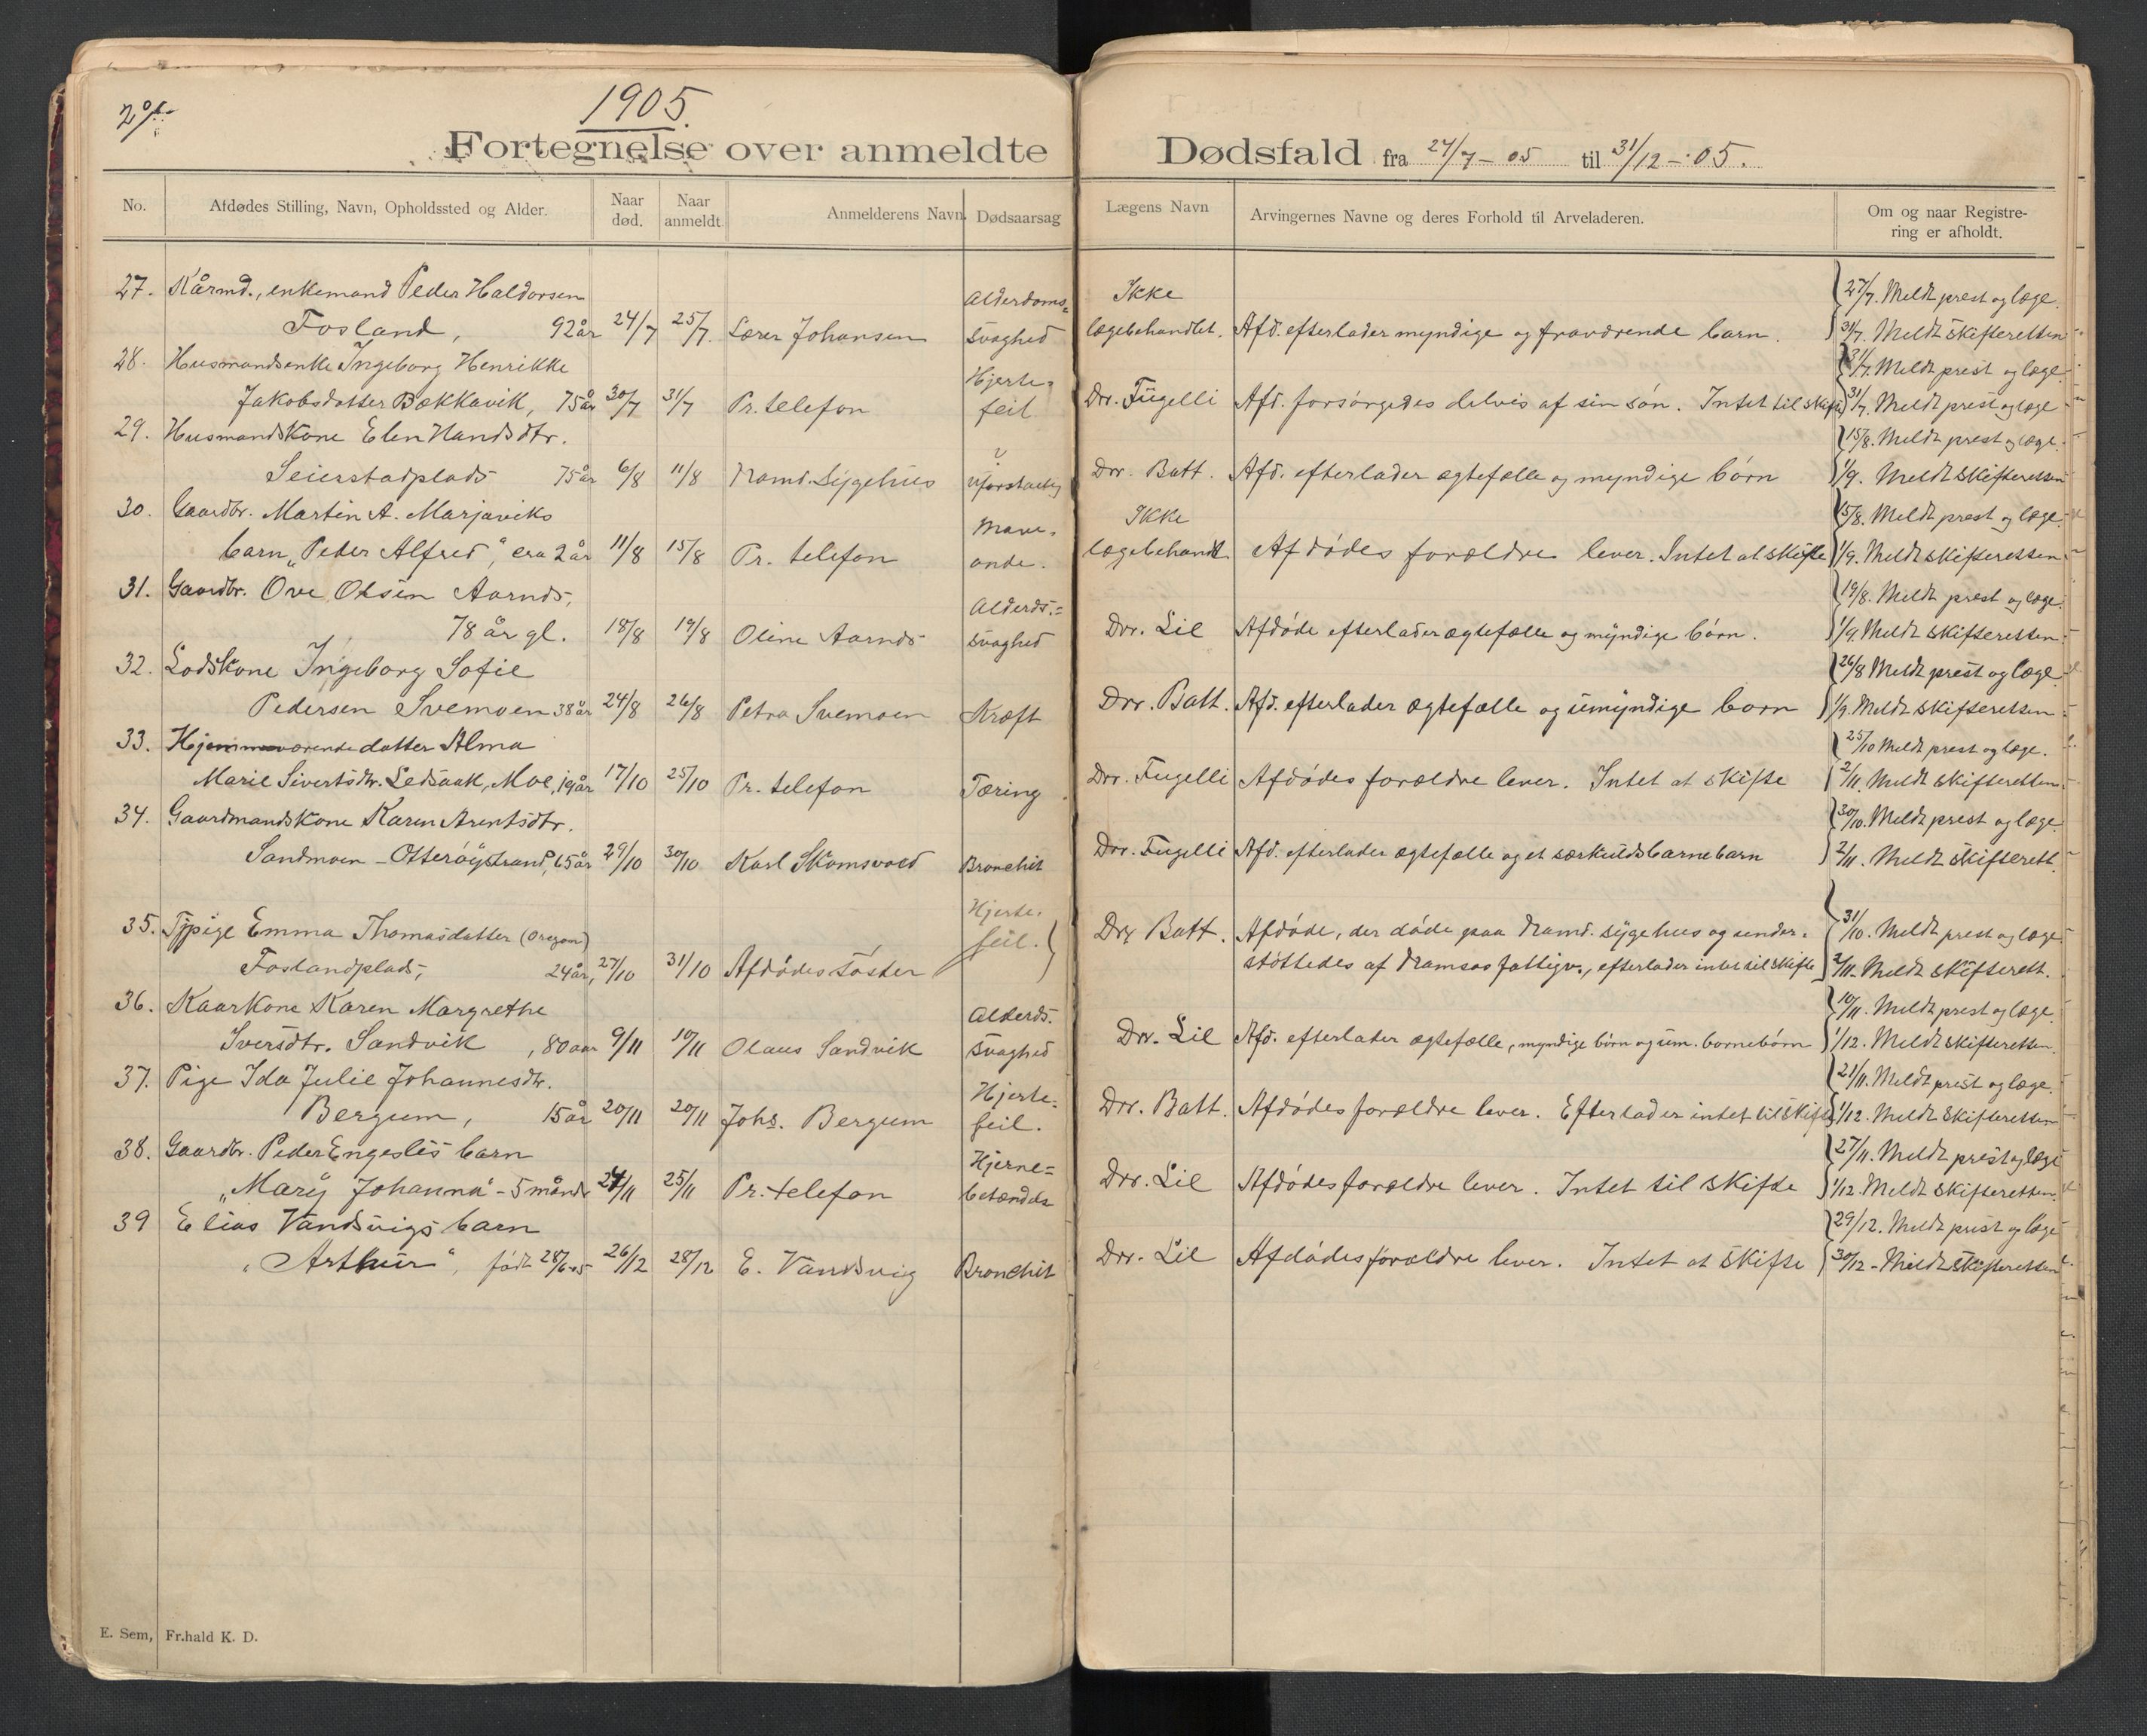 1905.
Fortegnelse over anmeldte Dødsfald fra 24/7 - 05 til 31/12 - 05.
No. Afdødes Stilling, Navn, Opholdssted og Alder. Naar død. Naar anmeldt. Anmelderens Navn. Dødsaarsag Lægens Navn Arvingernes Navne og deres Forhold til Arveladeren. Om og naar Registrering er afholdt.
27. Kårmd., enkemand Peder Haldorsen Alderdoms= Ikke 27/7. Meldt prest og læge.
Fosland, 92 år 24/7 25/7. Lærer Johansen svaghed lægebehandlet. Afd. efterlader myndige og fraværende barn. 31/7. Meldt skifteretten
28. Husmandsenke Ingeborg Henrikke Hjerte= 31/7. Meldt prest og læge.
Jakobsdatter Bækkavik, 75 år 30/7 31/7 Pr. telefon feil Dr. Fügelli Afd. forsørgedes delvis af sin søn. Intet til skifte 31/7. Meldt prest og læge
29. Husmandskone Elen Handsdtr. 15/8. Meldt prest og læge.
Seierstadplads 75 år 6/8 11/8 Namd. Sygehus Dr. Batt. Afd. efterlader ægtefælle og myndige børn 1/9. Meldt skifteretten
30. Gaardbr. Martin A. Marjaviks Mave- Ikke 15/8. Meldt prest og læge.
barn „Peder Alfred", cra 2 år 11/8 15/8 Pr. telefon onde. lægebehandt Afdødes forældre lever. Intet at skifte 1/9. Meldt skifteretten
31. Gaardbr. Ove Olsen Aarnds, Alderds.= 19/8. Meldt prest og læge.
78 år gl. 18/8 19/8 Oline Aarnds svaghed Dr. Lil Afdøde efterlader ægtefælle og myndige børn. 1/9. Meldt skifteretten
32. Lodskone Ingeborg Sofie 26/8 Meldt prest og læge
Pedersen Svemoen 38 år 24/8 26/8 Petra Svemoen Kræft Dr. Batt. Afd. efterlader ægtefælle og umyndige born 1/9. Meldt skifteretten
33. Hjemmeværende datter Alma 25/10 Meldt prest og læge.
Marie Sivertsdtr. Ledsaak, Moe, 19 år 17/10 25/10 Pr. telefon Tæring Dr. Fugelli Afdødes forældre lever. Intet at skifte 2/11. Meldt skifteretten
34. Gaardmandskone Karen Arentsdtr. 30/10. Meldt prest og læge
Sandmoen - Otterøystrand, 65 år 29/10 30/10 Karl Skomsvold Bronchit Dr. Fügelli Afd. efterlader ægtefælle og et særkuldsbarnebarn 2/11. Meldt skifterett.
35. Tjpige Emma Thomasdatter (Oregon) Hjerte- feil. Dr. Batt. Afdøde, der døde paa Namd. sygehus og under- 31/10. Meldt prest og læge
Foslandplads, 24 år, 27/10 31/10 Afdødes søster støttedes af Namsos fattigv., efterlader intet til skifte 2/11. Meldt skifterett.
36. Kaarkone Karen Margrethe Alderds. 10/11. Meldt prest og læge
Iversdtr. Sandvik, 80 aar 9/11 10/11 Olaus Sandvik svaghed Dr. Lil Afd. efterlater ægtefælle, myndige børn og um. barnebørn 1/12. Meldt skifteretten.
37. Pige Ida Julie Johannesdtr. Hjerte- 21/11. Meldt prest og læge.
Bergum, 15 år 20/11 20/11 Johs. Bergum feil. Dr. Batt. Afdødes forældre lever. Efterlader intet til skifte 1/12. Meldt skifteretten
38. Gaardbr. Peder Engeslis barn Hjerne= 27/11. Meldt prest og læge
„Mary Johanna" - 5 måndr 24/11 25/11 Pr. telefon betændels Dr. Lil Afdødes forældre lever. Intet til skifte 1/12. Meldt skifteretten.
39 Elias Vandsvigs barn 29/12. Meldt prest og læge
„Arthur", født 28/6-05 26/12 28/12 E. Vandsvig Bronchit Dr. Lil Afdødes forældre lever. Intet at skifte 30/12 - Meldt skifteretten
E. Sem, Fr.hald K. D.